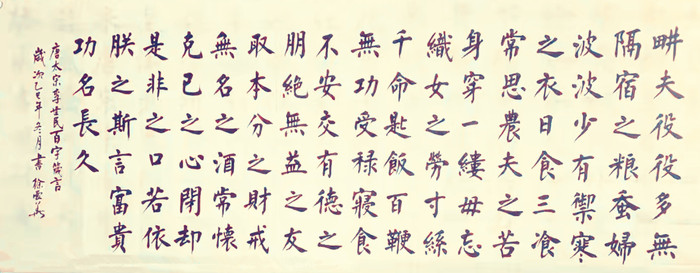 畊夫役役多無
隔宿之粮蚕婦
波波少有禦寒
之衣日食三飡
常思農夫之苦
身穿一縷毋忘
織女之勞寸絲
千命匙飯百鞭
無功受禄寢食
不安交有德之
朋絕無益之友
取本分之財戒
無名之酒常懷
克己之心閉却
是非之口若依
朕之斯言富貴
功名長久
唐太宗李世民百字箴言
歲次乙巳年冬月書 徐